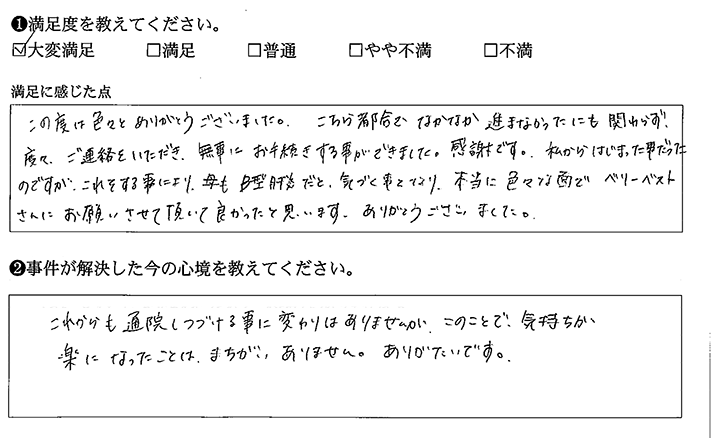 ❶満足度を教えてください。
☑大変満足 □満足 □普通 □やや不満 □不満
満足に感じた点
この度は色々とありがとうございました。 こちら都合で なかなか 進まなかったにも 関わらず、
度々、ご連絡をいただき、無事に お手続きする事ができました。感謝です。私からはじまった事だった
のですが、これをする事により、母も B型肝炎だと、気づく事となり、本当に色々な面で ベリーベスト
さんに お願いさせて頂いて良かったと思います。ありがとうございました。
❷事件が解決した今の心境を教えてください。
これからも 通院しつづける事に変わりはありませんが、このことで、気持ちが
楽に なったことは、まちがいありません。ありがたいです。